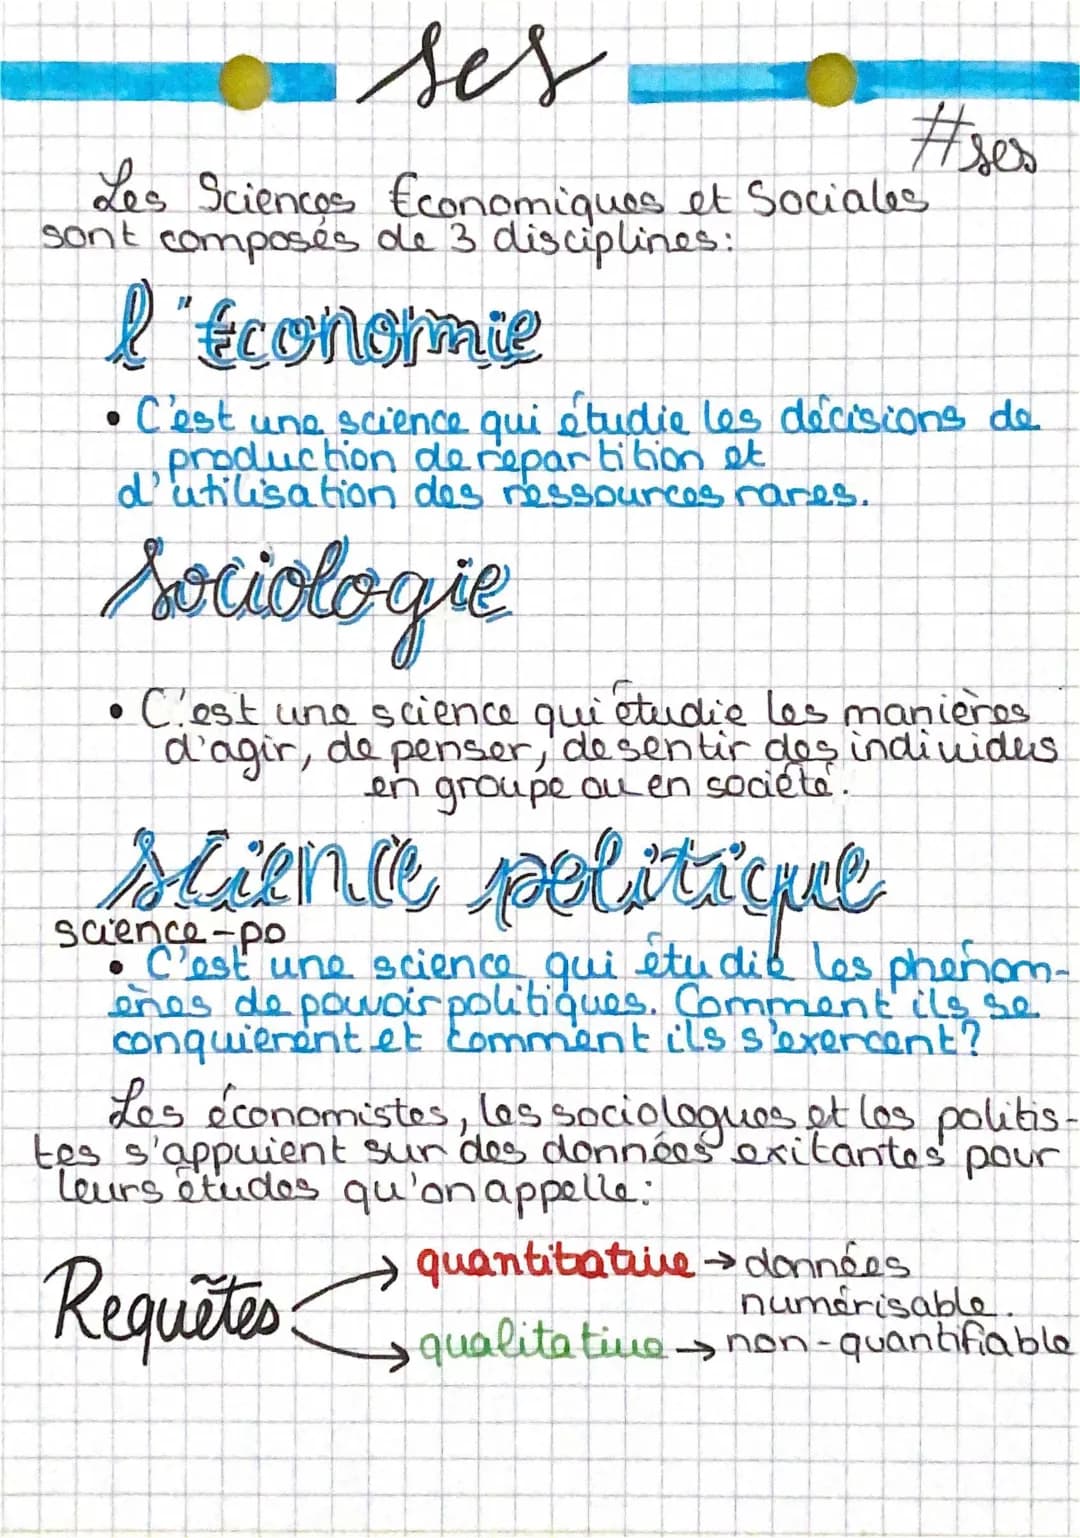 ses
#ses
Les Sciences Économiques et Sociales
sont composés de 3 disciplines:
l'Économie
• C'est une science qui étudie les décisions de
production de repartition et
d'utilisation des ressources rares.
Sociologie
• C'est une science qui étudie les manières
d'agir, de penser, de sentir des individus
en groupe ou en société.
science politique
science-po
• C'est une science qui étudie les phénom-
ènes de pouvoir politiques. Comment ils se
conquièrent et comment ils s'exercent?
Les économistes, les sociologues et les politis-
tes s'appuient sur des données exitantes pour
leurs études qu'on appelle:
Requêtes
→ quantitative → données
numérisable.
→ qualitative → non-quantifiable